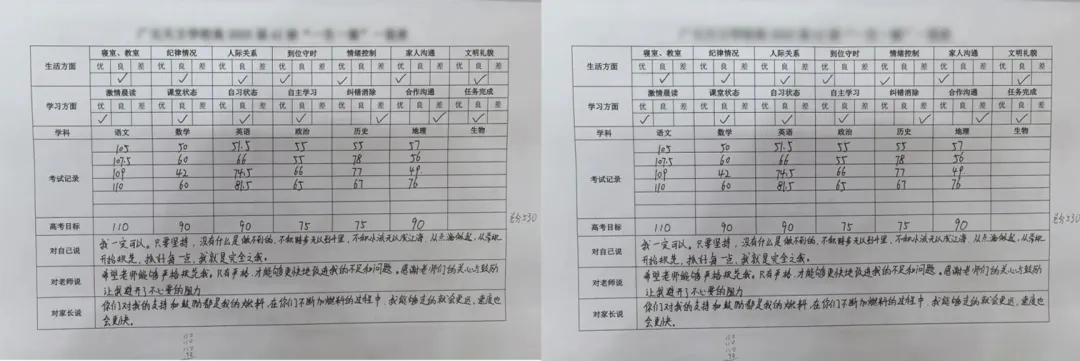 生活方面 寝室、教室 纪律情况 人际关系 到位守时 情绪控制 家人沟通 文明礼貌
优 良 差 优 良 差 优 良 差 优 良 差 优 良 差 优 良 差 优 良 差
✓ ✓ ✓ ✓ ✓ ✓ ✓
学习方面 激情晨读 课堂状态 自习状态 自主学习 纠错消除 合作沟通 任务完成
优 良 差 优 良 差 优 良 差 优 良 差 优 良 差 优 良 差 优 良 差
✓ ✓ ✓ ✓ ✓ ✓ ✓
学科 语文 数学 英语 政治 历史 地理 生物
考试记录
105 50 51.5 55 55 57
107.5 60 66 55 78 56
109 42 74.5 66 77 49
110 60 81.5 65 67 76
高考目标 110 90 90 75 75 90
总分530
对自己说 我一定可以。只要坚持,没有什么是做不到的,不积跬步无以到千里,不积小流无以成江海,从点滴做起,从
开始改变,做好每一点,我就是完全之我。
对老师说 希望老师能够严格要求我。只有严格,才能够更快地改进我的不足和问题。感谢老师们的关心与鼓励
让我避开了不必要的阻力
对家长说 你们对我的支持和鼓励都是我的燃料,在你们不断加燃料的过程中,我能够走的就会更远,速度也
会更快。
生活方面 寝室、教室 纪律情况 人际关系 到位守时 情绪控制 家人沟通 文明礼貌
优 良 差 优 良 差 优 良 差 优 良 差 优 良 差 优 良 差 优 良 差
✓ ✓ ✓ ✓ ✓ ✓ ✓
学习方面 激情晨读 课堂状态 自习状态 自主学习 纠错消除 合作沟通 任务完成
优 良 差 优 良 差 优 良 差 优 良 差 优 良 差 优 良 差 优 良 差
✓ ✓ ✓ ✓ ✓ ✓ ✓
学科 语文 数学 英语 政治 历史 地理 生物
考试记录
105 50 51.5 55 55 57
107.5 60 66 55 78 56
109 42 74.5 66 77 49
110 60 81.5 65 67 76
高考目标 110 90 90 75 75 90
总分530
对自己说 我一定可以。只要坚持,没有什么是做不到的,不积跬步无以到千里,不积小流无以成江海,从点滴做起,从
开始改变,做好每一点,我就是完全之我。
对老师说 希望老师能够严格要求我。只有严格,才能够更快地改进我的不足和问题。感谢老师们的关心与鼓励
让我避开了不必要的阻力
对家长说 你们对我的支持和鼓励都是我的燃料,在你们不断加燃料的过程中,我能够走的就会更远,速度也
会更快。